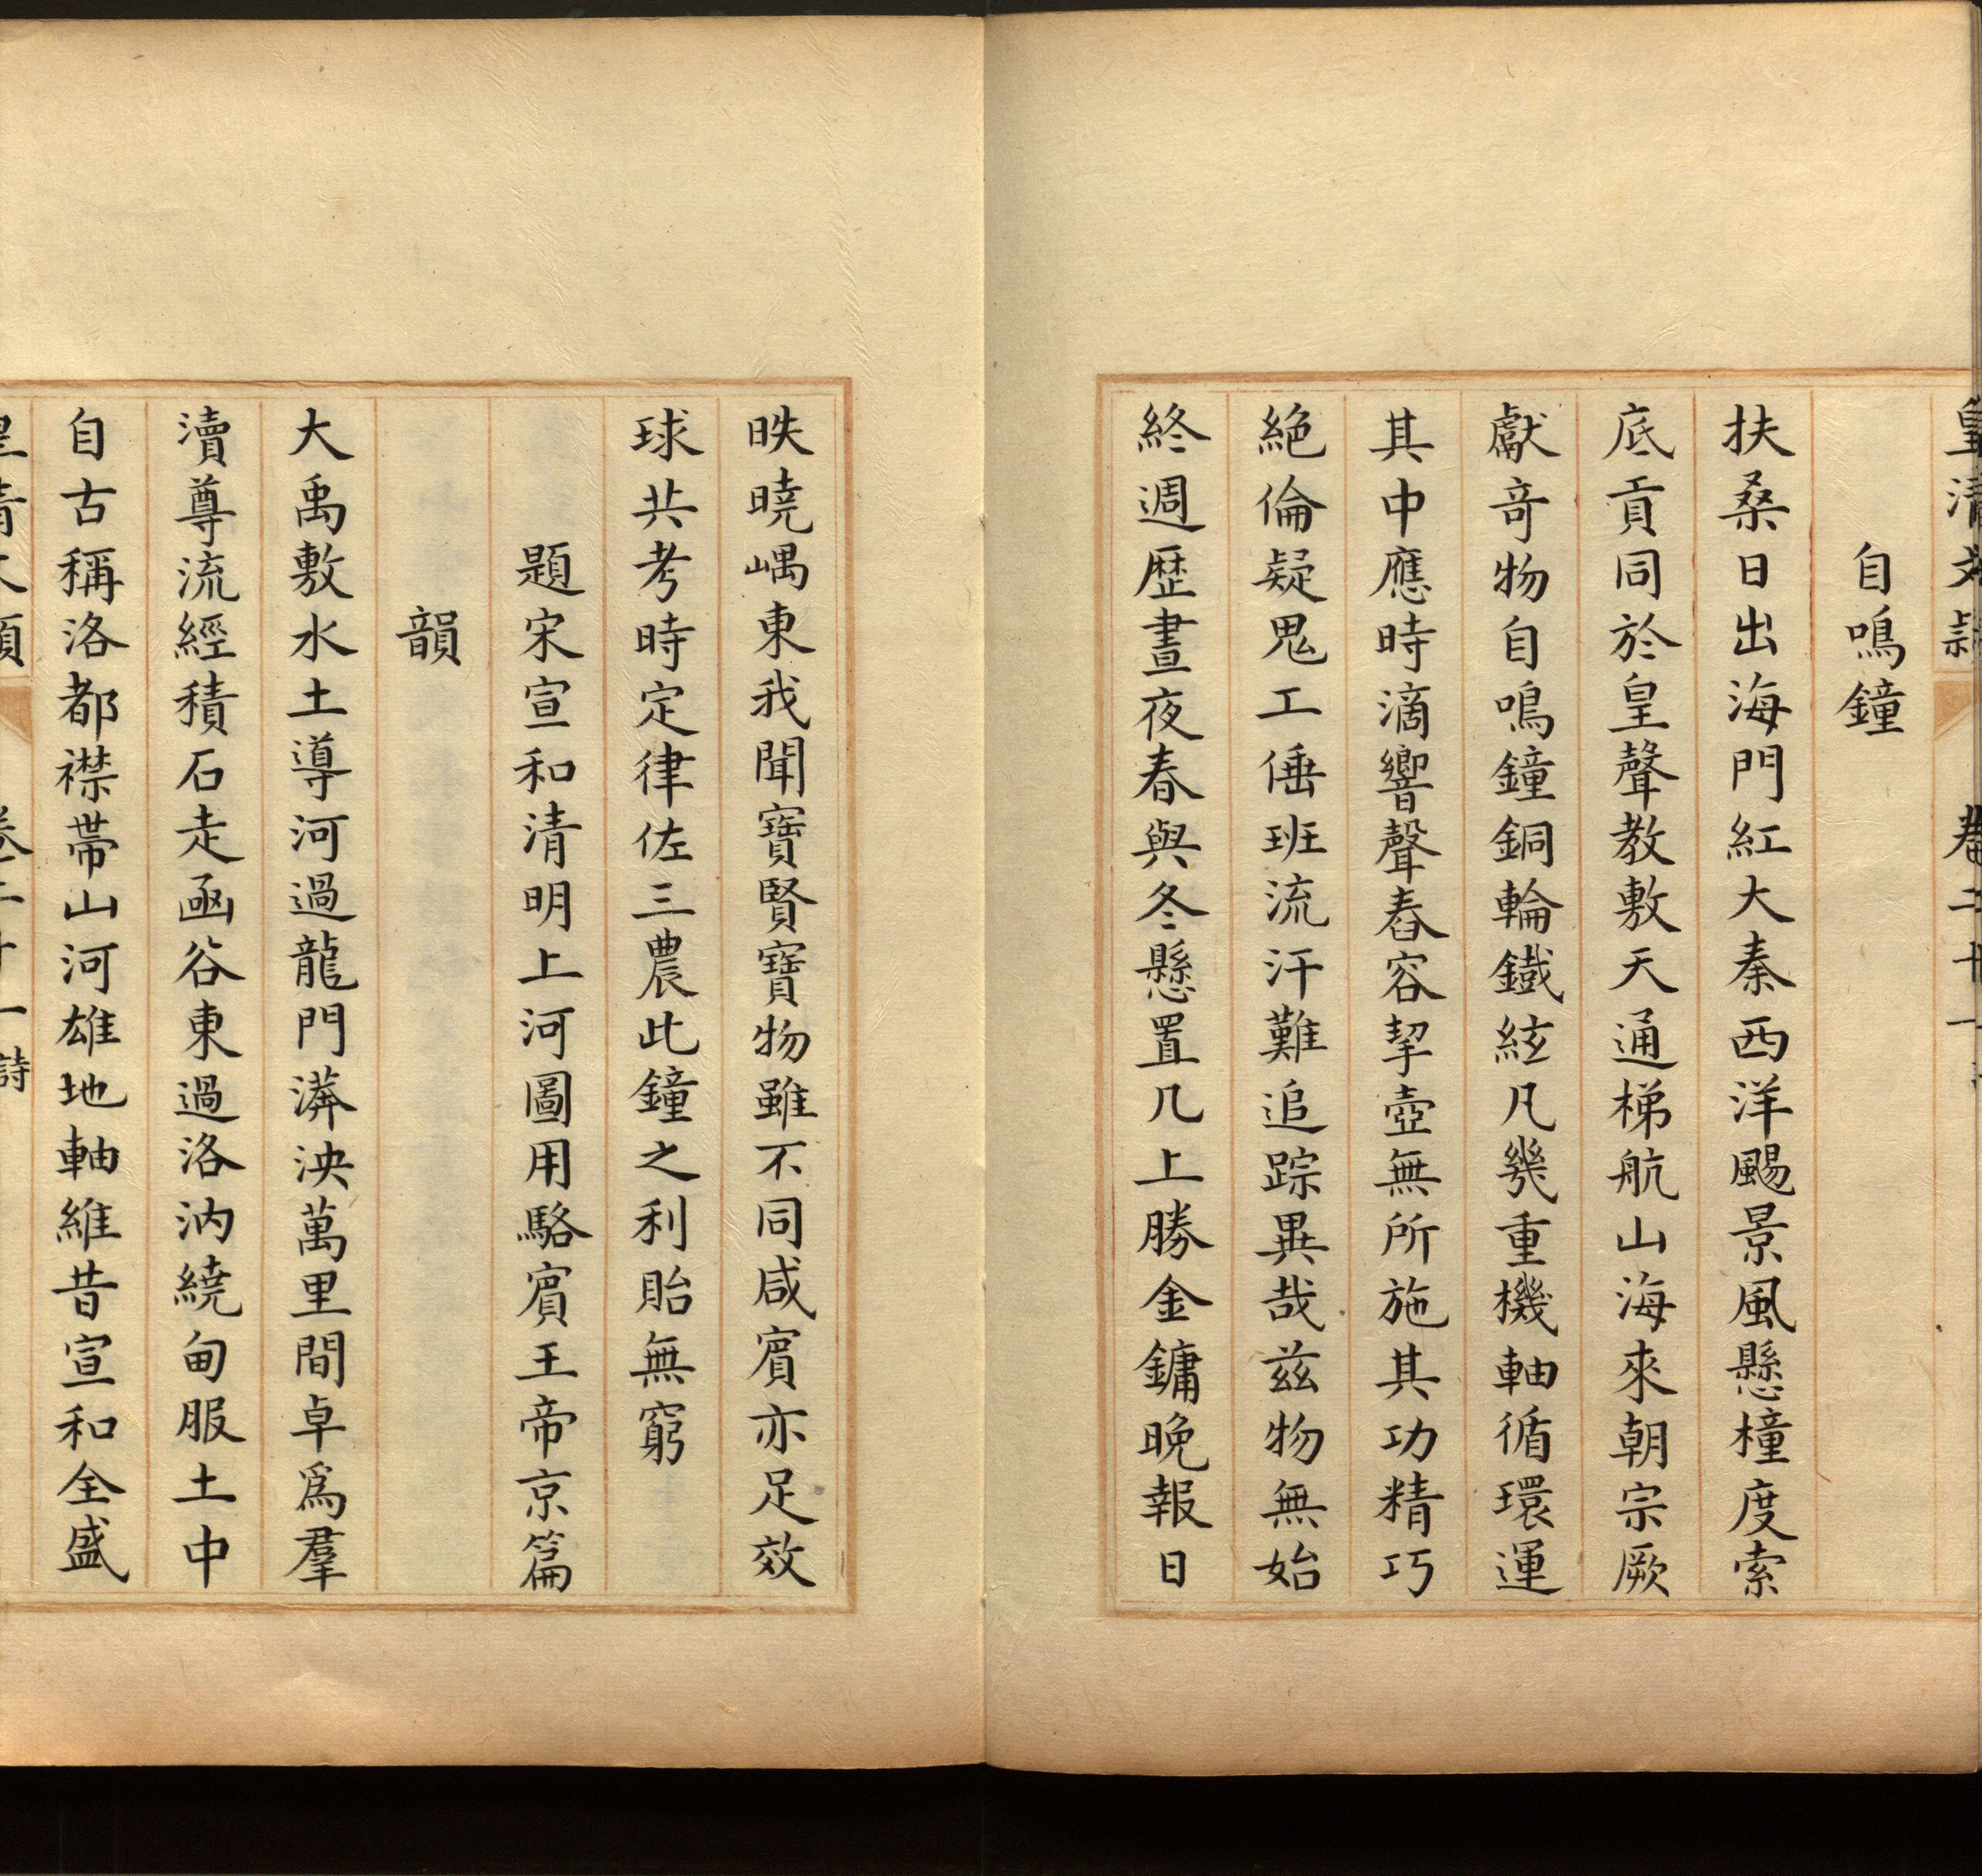 自鳴鐘
扶桑日出海門紅大秦西洋颺景風懸橦度索
底貢同於皇聲教敷天通梯航山海來朝宗厥
獻奇物自鳴鐘銅輪鐵絃凡幾重機軸循環運
其中應時滴響聲舂容挈壺無所施其功精巧
絕倫疑鬼工倕班流汗難追踪異哉茲物無始
終週歷晝夜春與冬懸置几上勝金鏞晚報日
昳曉嵎東我聞寶賢寶物雖不同咸賓亦足效
球共考時定律佐三農此鐘之利貽無窮
題宋宣和清明上河圖用駱賓王帝京篇
韻
大禹敷水土導河過龍門漭泱萬里間卓為羣
瀆尊流經積石走函谷東過洛汭繞甸服土中
自古稱洛都襟帶山河雄地軸維昔宣和全盛